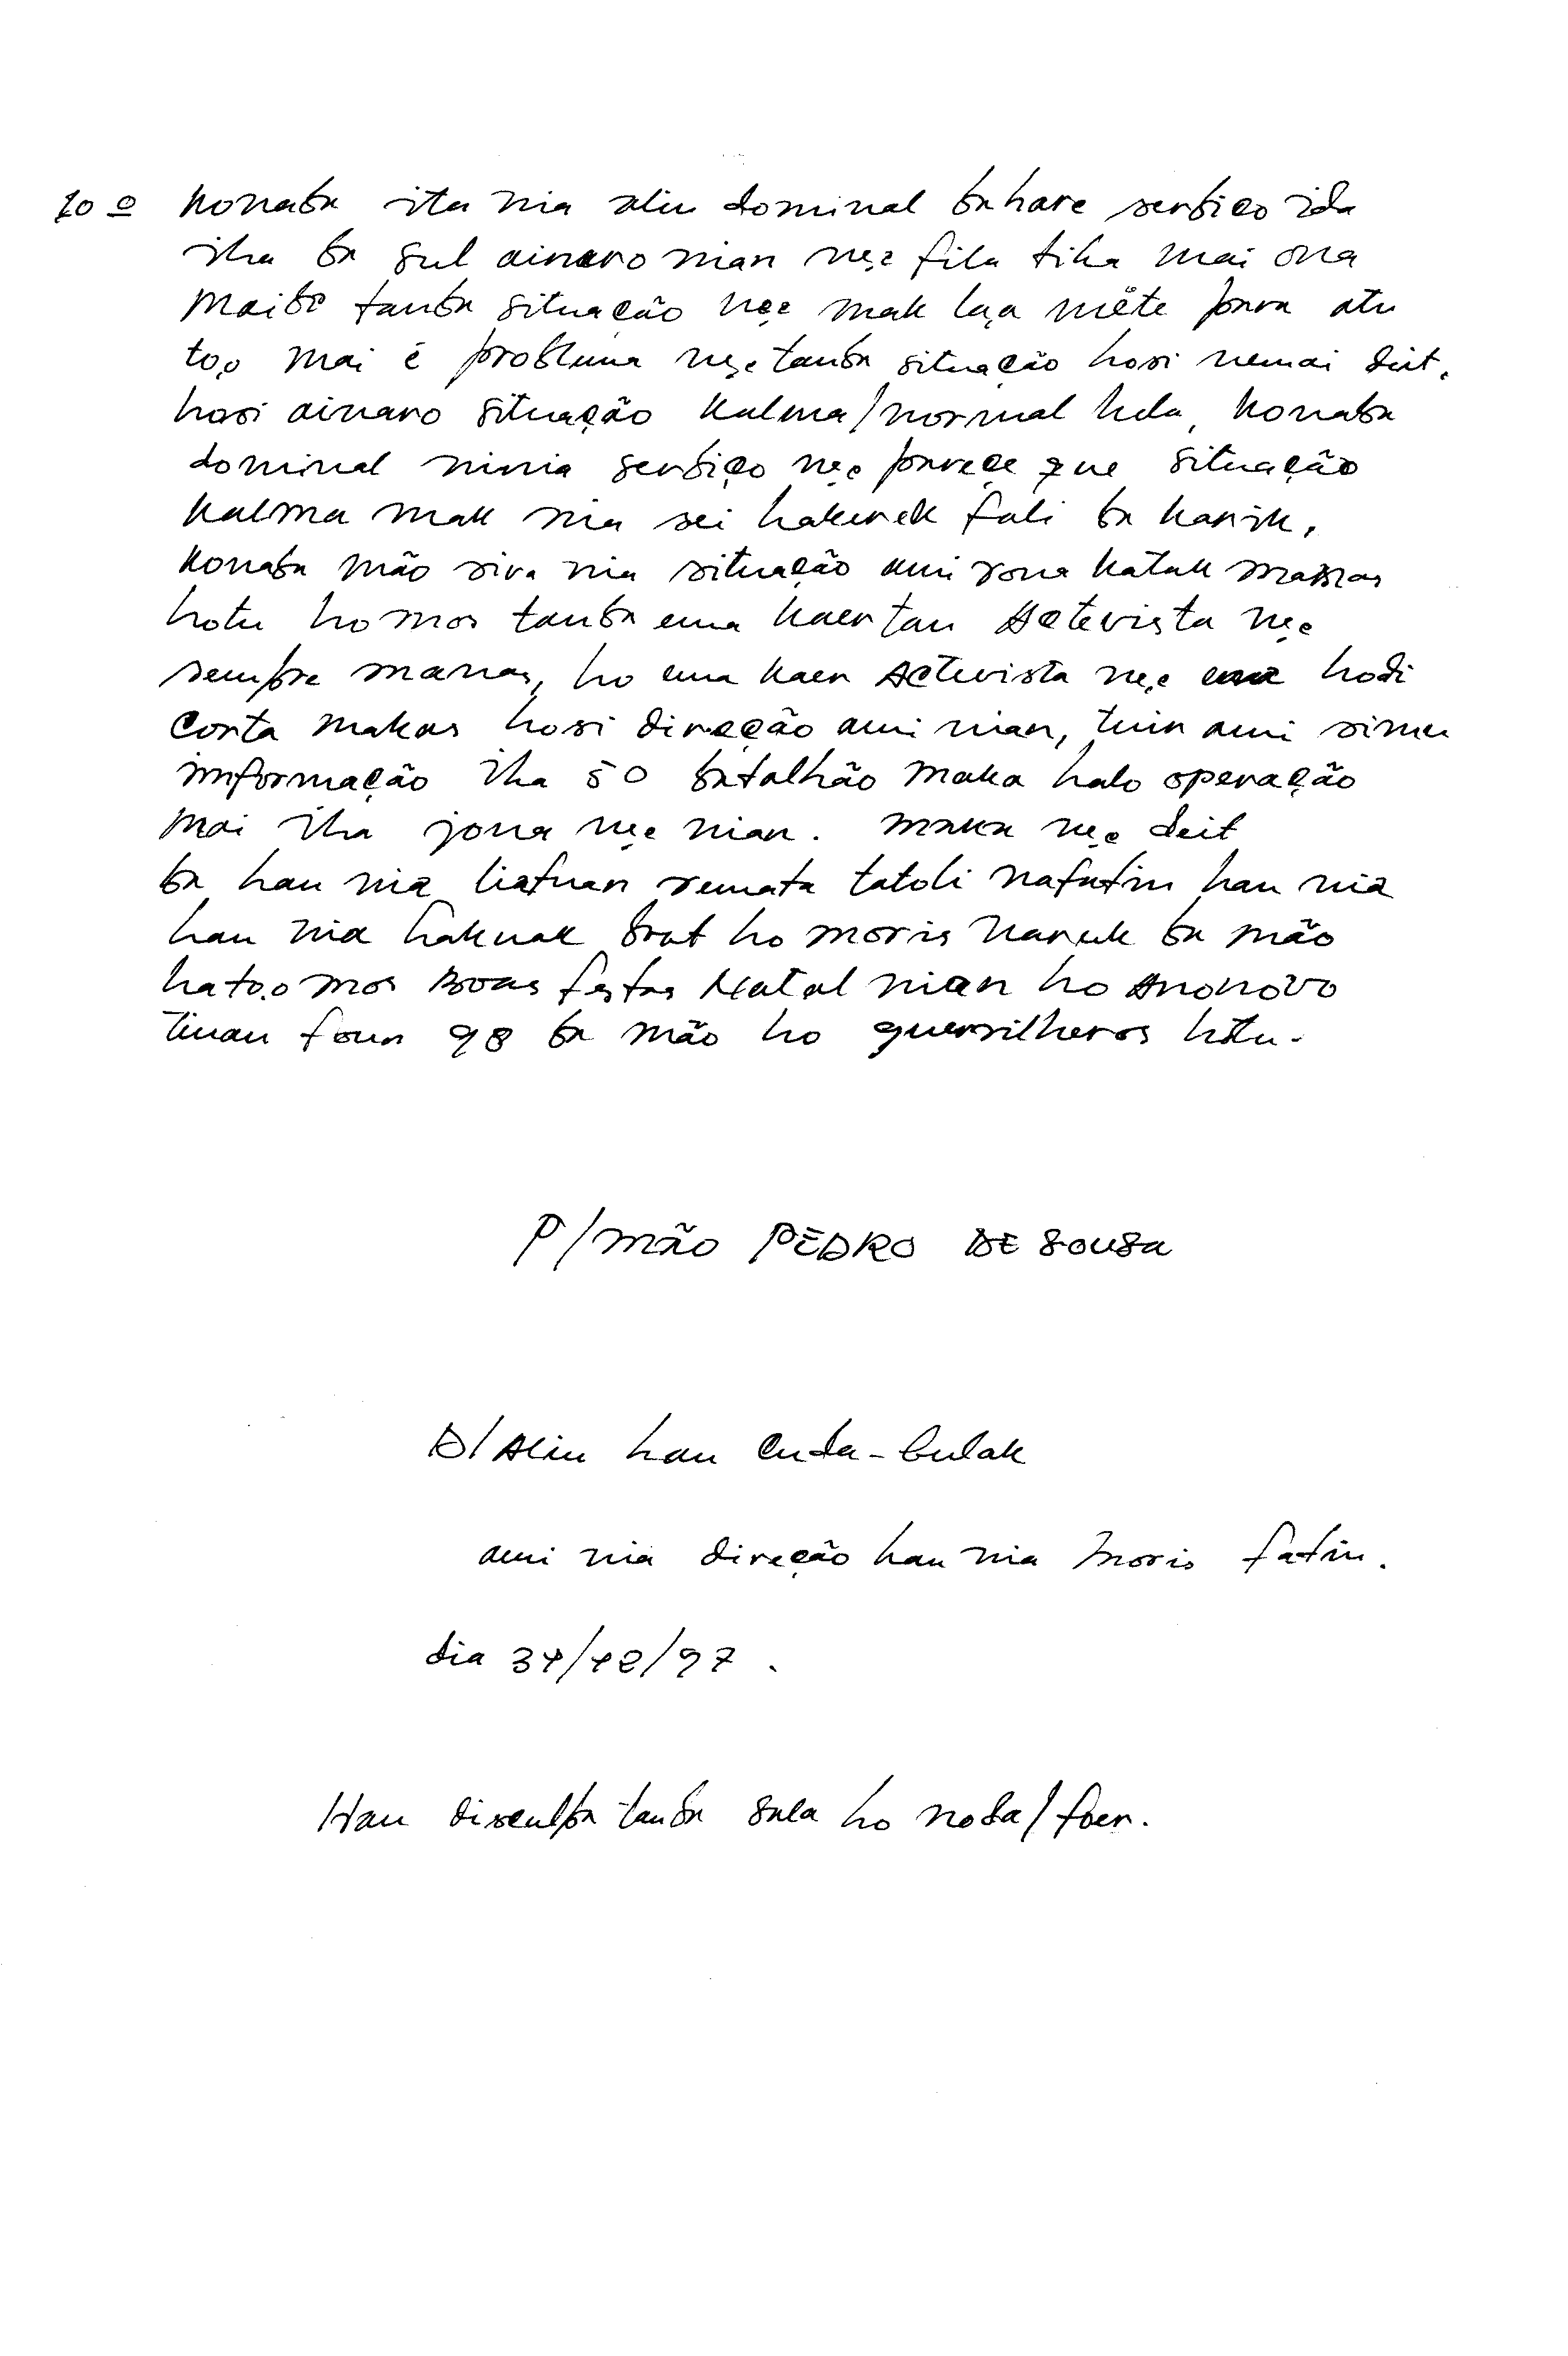 10º Konaba ita nia alin dominal ba hare serbiço ida
iha ba sul ainaro nian ne,e fila tiha mai ona
maibe tanba situação ne,e mak la,a mête para atu
to,o mai é probluma ne,e tanba situação hosi nemai deit,
hosi ainaro situação kalma/normal hela, konaba
dominal ninia serbiço ne,e parece que situação
kalma mak nia sei hakerek fali ba karik,
konaba mão sira nia situação ami rona katak manas
hotu ho mos tanba ema kaer tan Actevista ne,e
sempre manas, ho ema kaer Activista ne,e ema hodi
conta makas hosi direção ami nian, tuir ami simu
imformação iha 50 batalhão maka halo operação
mai iha jona ne,e nian. maka ne,e deit
ba hau nia liafuan remata tatoli nafatin hau nia
hau nia hakuak boot ho moris naruk ba mão
hato,o mos Boas festas Natal nian ho Anonovo
tinan foun 98 ba mão ho guerrilheros hotu.
P/mão PEDRO DE SOUSA
D/Alin hau Cuda-bulak
ami nia direção hau nia moris fatin.
dia 31/12/97.
Hau disculpa tanba sala ho noda/foer.